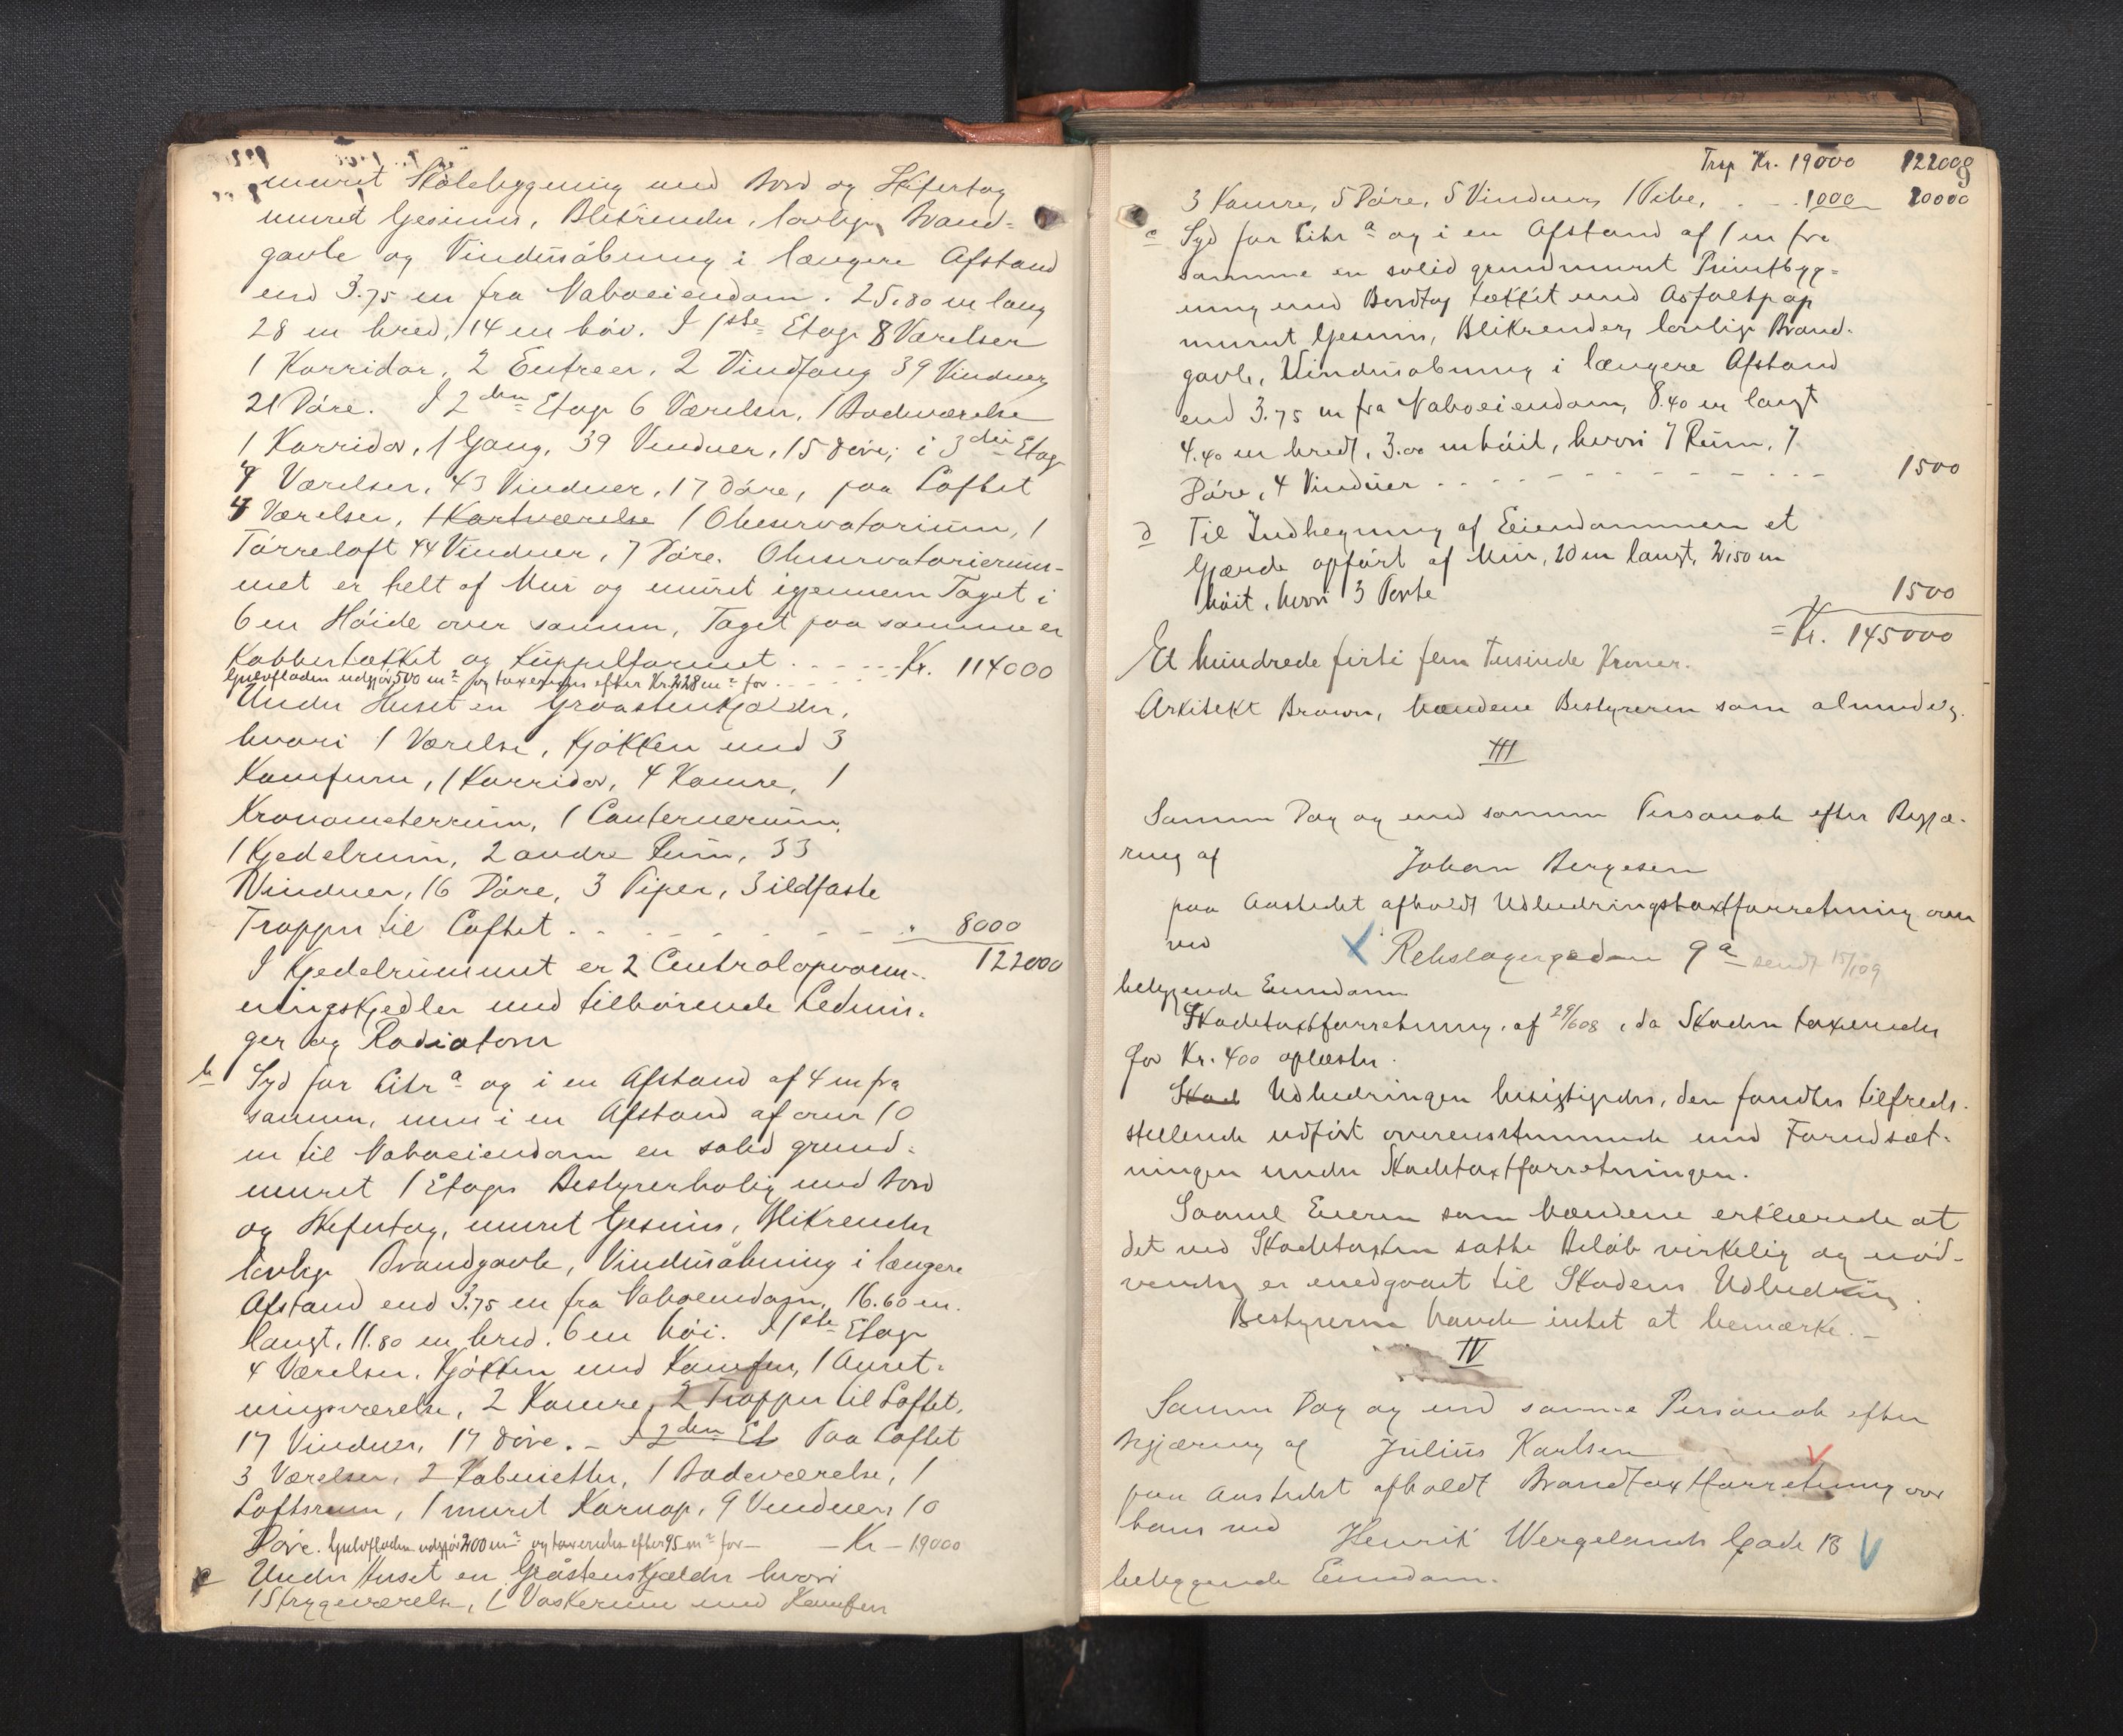 muret Skolebygning med Bord og Skifertag
muret Gesims, Blikrender, lovlige Brand-
gavle og Vinduesåbning i længere Afstand
end 3.75 m fra Naboeiendom. 25.80 m lang
28 m bred, 14 m høi. I 1ste Etage 8 Værelser
1 Korridor, 2 Entreer, 2 Vindfang 39 Vinduer
21 Døre. I 2den Etage 6 Værelser, 1 Badeværelse
1 Korridor, 1 Gang, 39 Vinduer, 15 Døre, i 3die Etage
7 Værelser, 43 Vinduer, 17 Døre, paa Loftet
4 Værelser, 1 Kartværelse 1 Observatorium, 1
Tørreloft 44 Vinduer, 7 Døre. Observatorierum-
met er helt af Mur og muret igjennem Taget i
6 m Høide over samme, Taget paa samme er
Kobbertækket og Kuppelformet . - - - - - Kr. 114000
Gulvfladen udgjør 500 m² og taxeredes efter Kr. 228 m² for - - - - -
Under Huset en Graastenskjælder,
hvori 1 Værelse, Kjøkken med 3
Komfurer, 1 Korridor, 4 Kamre, 1
Kronometerrum, 1
1 Kjedelrum, 2 andre Rum, 33
Vinduer, 16 Døre, 3 Piper, 3 ildfaste
Trapper til Loftet . - - - - - - - - " 8000
I Kjedelrummet er 2 Centralopvarm- 122000
ningskjedler med tilhørende Lednin-
ger og Radiatorer
b Syd for Litr a og i en Afstand af 4 m fra
samme, men i en Afstand af over 10
m til Naboeiendom en solid grund-
muret 1 Etages Bestyrerbolig med Bord
og Skifertag, muret Gesims, Blikrender
lovlige Brandgavle, Vinduesåbning i længere
Afstand end 3.75 m fra Naboeiendom, 16.60 m.
langt, 11.80 m bred. 6 m høi. I 1ste Etage
4 Værelser, Kjøkken med Komfur, 1 Anret-
ningsværelse, 2 Kamre, 2 Trapper til Loftet,
17 Vinduer, 17 Døre. - I 2den Et Paa Loftet
3 Værelser, 2 Kabinetter, 1 Badeværelse, 1
Loftsrum, 1 muret Karnap, 9 Vinduer, 10
Døre. Gulvfladen udgjør 200 m² og taxeredes efter 95 m² for - - Kr - 19000
Under Huset en Gråstenskjælder hvori
1 Strygeværelse, 1 Vaskerum med Komfur
Trsp Kr. 19000 122000
3 Kamre, 5 Døre, 5 Vinduer, 1 Pibe, . - . 1000 20000
c Syd for Litr a og i en Afstand af 1 m fra
samme en solid grundmuret Privetbyg-
ning med Bordtag tækket med Asfaltpap
muret Gesims, Blikrender, lovlige Brand-
gavle, Vinduesåbning i længere Afstand
end 3.75 m fra Naboeiendom, 8.40 m langt
4.40 m bredt, 3.00 m høit, hvori 7 Rum, 7
Døre, 4 Vinduer . - - - - - - - - - 1500
d Til Indhegning af Eiendommen et
Gjærde opført af Mur, 20 m langt, 2,50 m
høit, hvori 3 Porte 1500
= Kr. 145000
Et hundrede firti fem Tusinde Kroner.
Arkitekt Brown, hændene Bestyreren som almindelig.
III
Samme Dag og med samme Personale efter Begjæ-
ring af Johan Bergesen
paa Aastedet afholdt Udbedringstaxtforretning over
ved Rebslagergaden 9a sendt 15/1 09
beliggende Eiendom
Skadetaxtforretning af 29/6 08, da Skaden taxeredes
for Kr. 400 oplæstes.
Skad Udbedringen besigtigedes, den fandtes tilfreds-
stillende udført overensstemmende med Forudsæt-
ningen under Skadetaxtforretningen.
Saavel Eieren som hændene erklærede at
det ved Skadetaxten satte Beløb virkelig og nød-
vendig er medgaaet til Skadens Udbedring.
Bestyreren havde intet at bemærke. -
IV
Samme Dag og med samme Personale efter
Begjæring af Julius Karlsen
paa Aastedet afholdt Brandtaxtforretning over
hans ved Henrik Wergelands Gade 18
beliggende Eiendom.